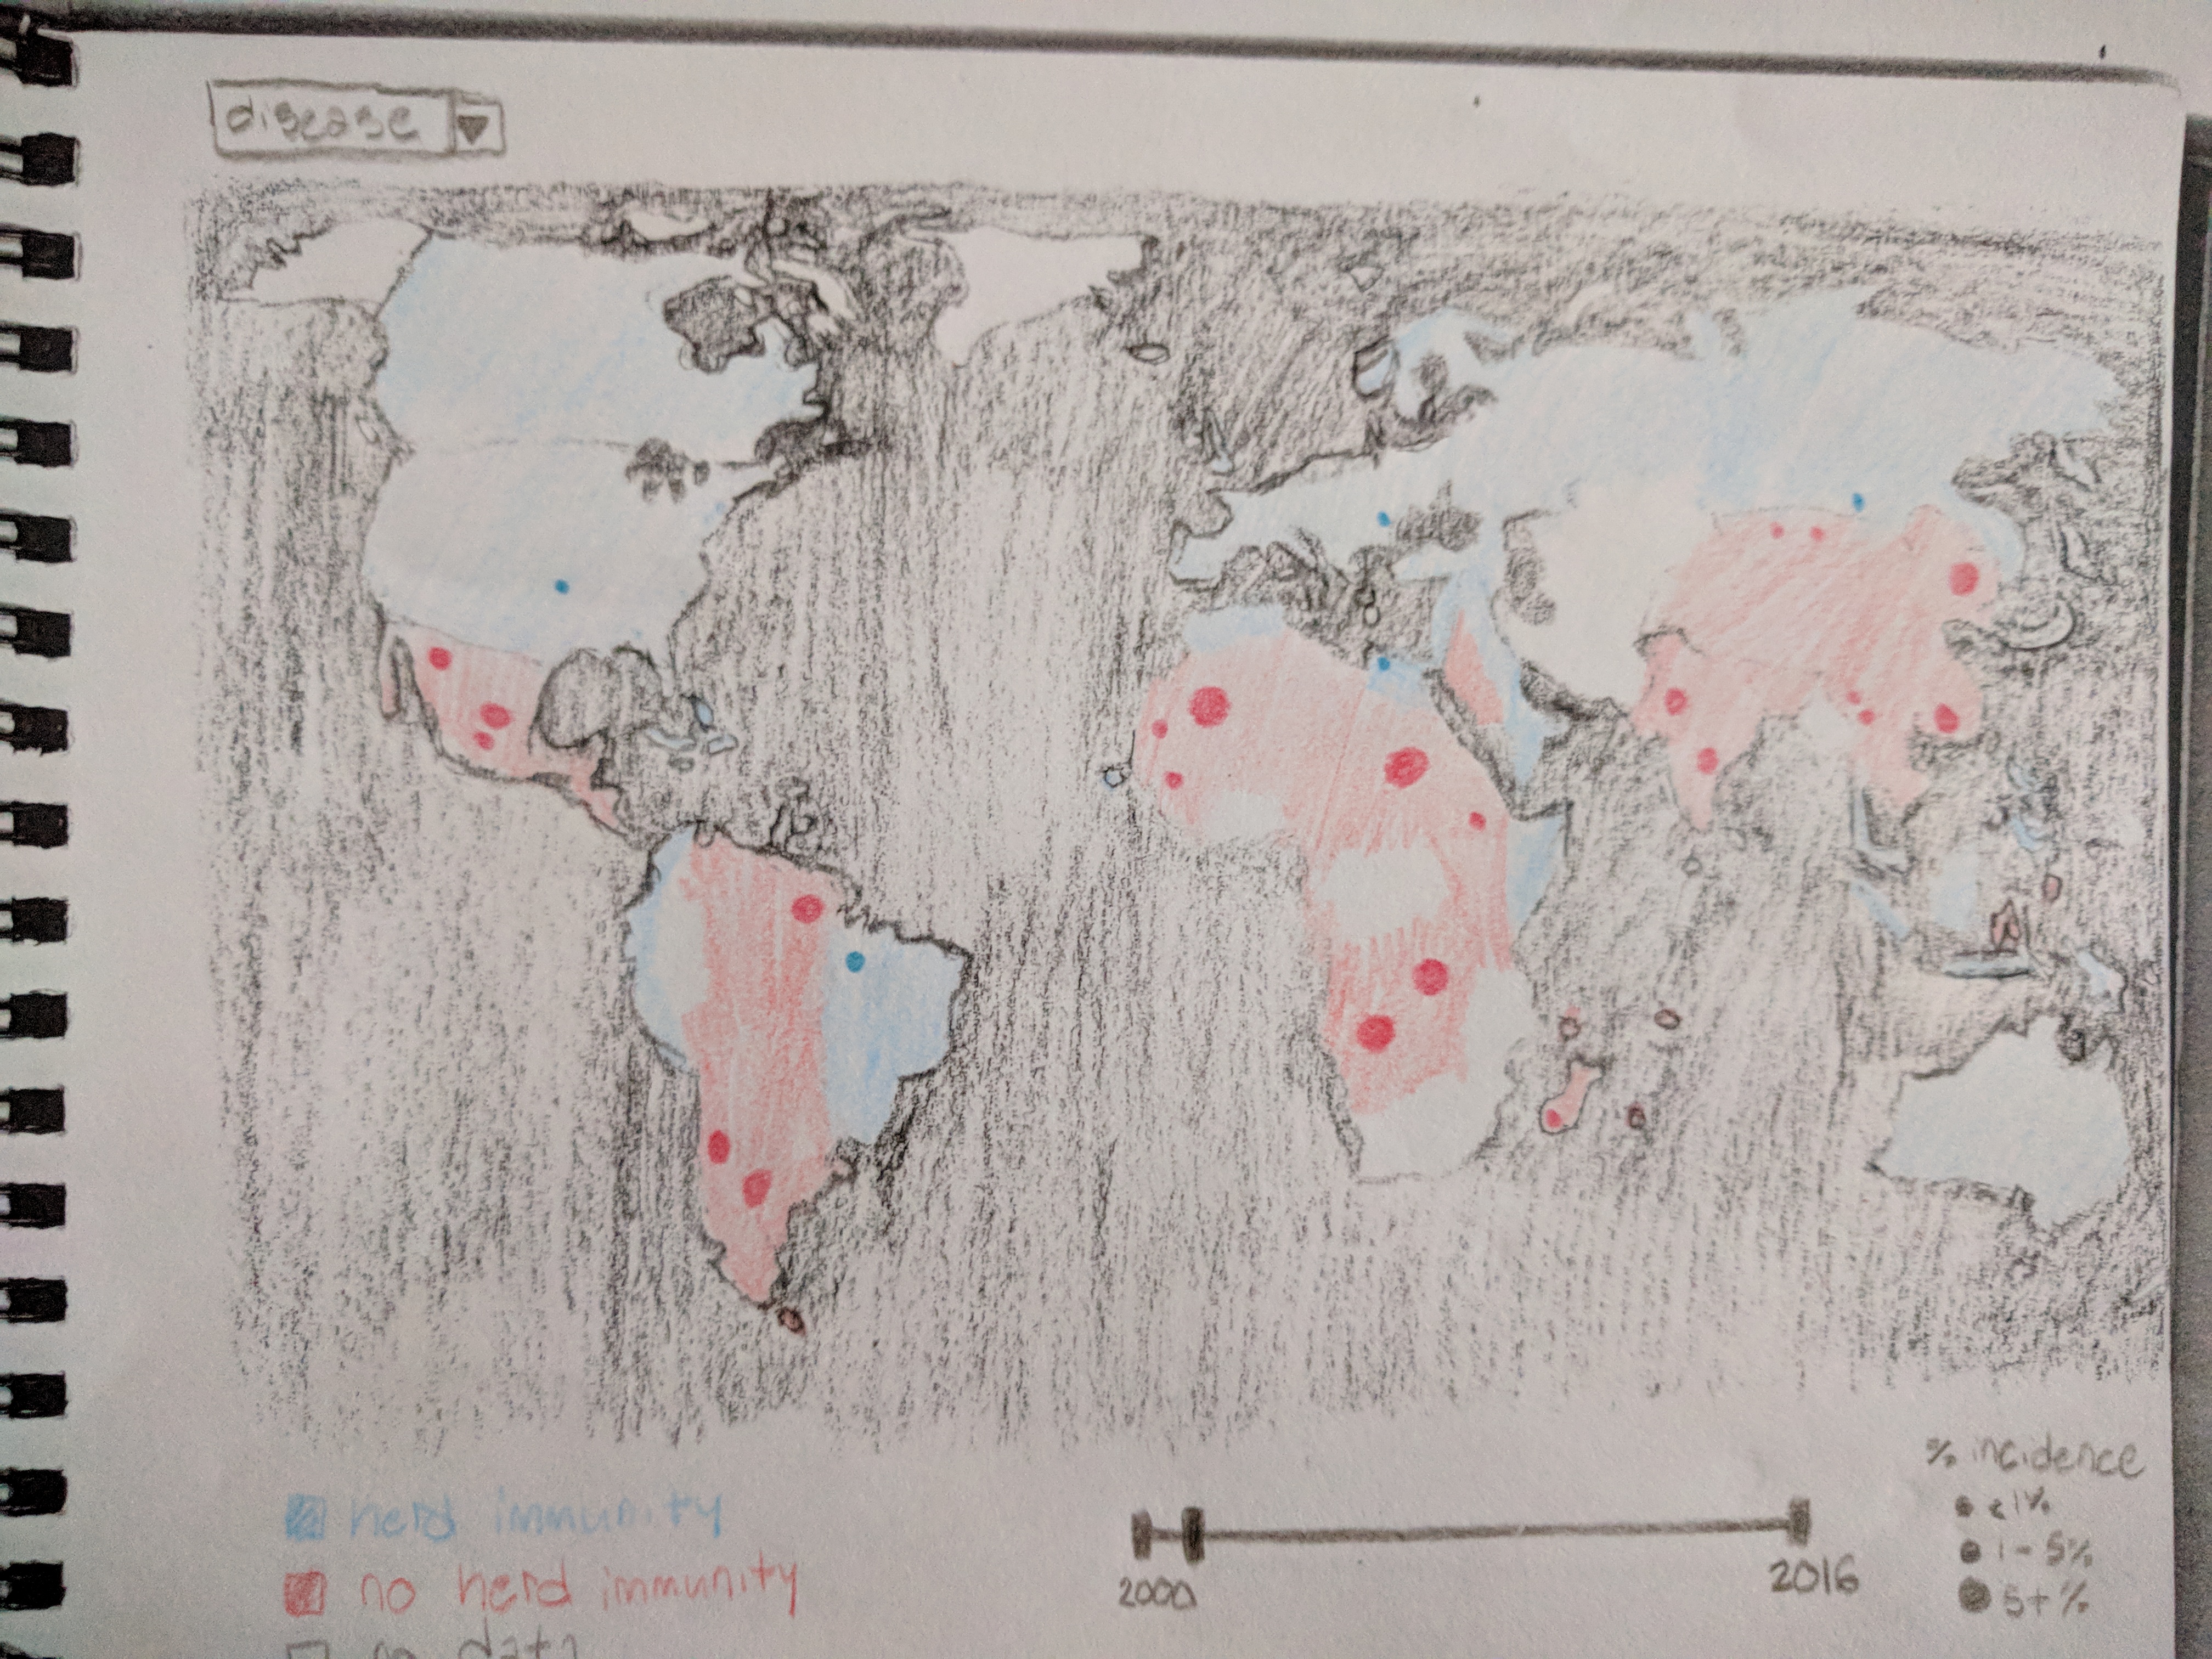 disease
herd immunity
no herd immunity
no data
2000
2016
% incidence
<1%
1-5%
5+%